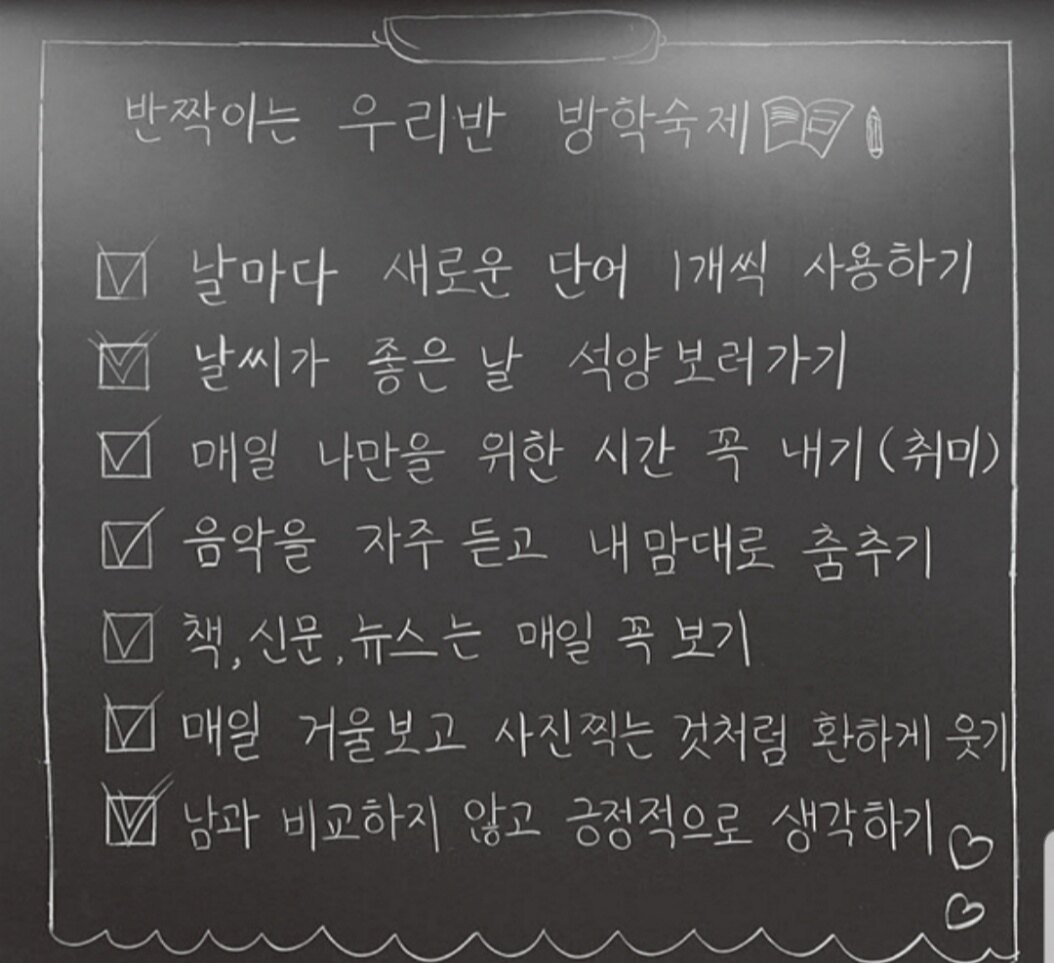 반짝이는 우리반 방학숙제
날마다 새로운 단어 1개씩 사용하기
날씨가 좋은 날 석양보러가기
매일 나만을 위한 시간 꼭 내기(취미)
음악을 자주 듣고 내맘대로 춤추기
책,신문,뉴스는 매일 꼭 보기
매일 거울보고 사진찍는 것처럼 환하게 웃기
남과 비교하지 않고 긍정적으로 생각하기